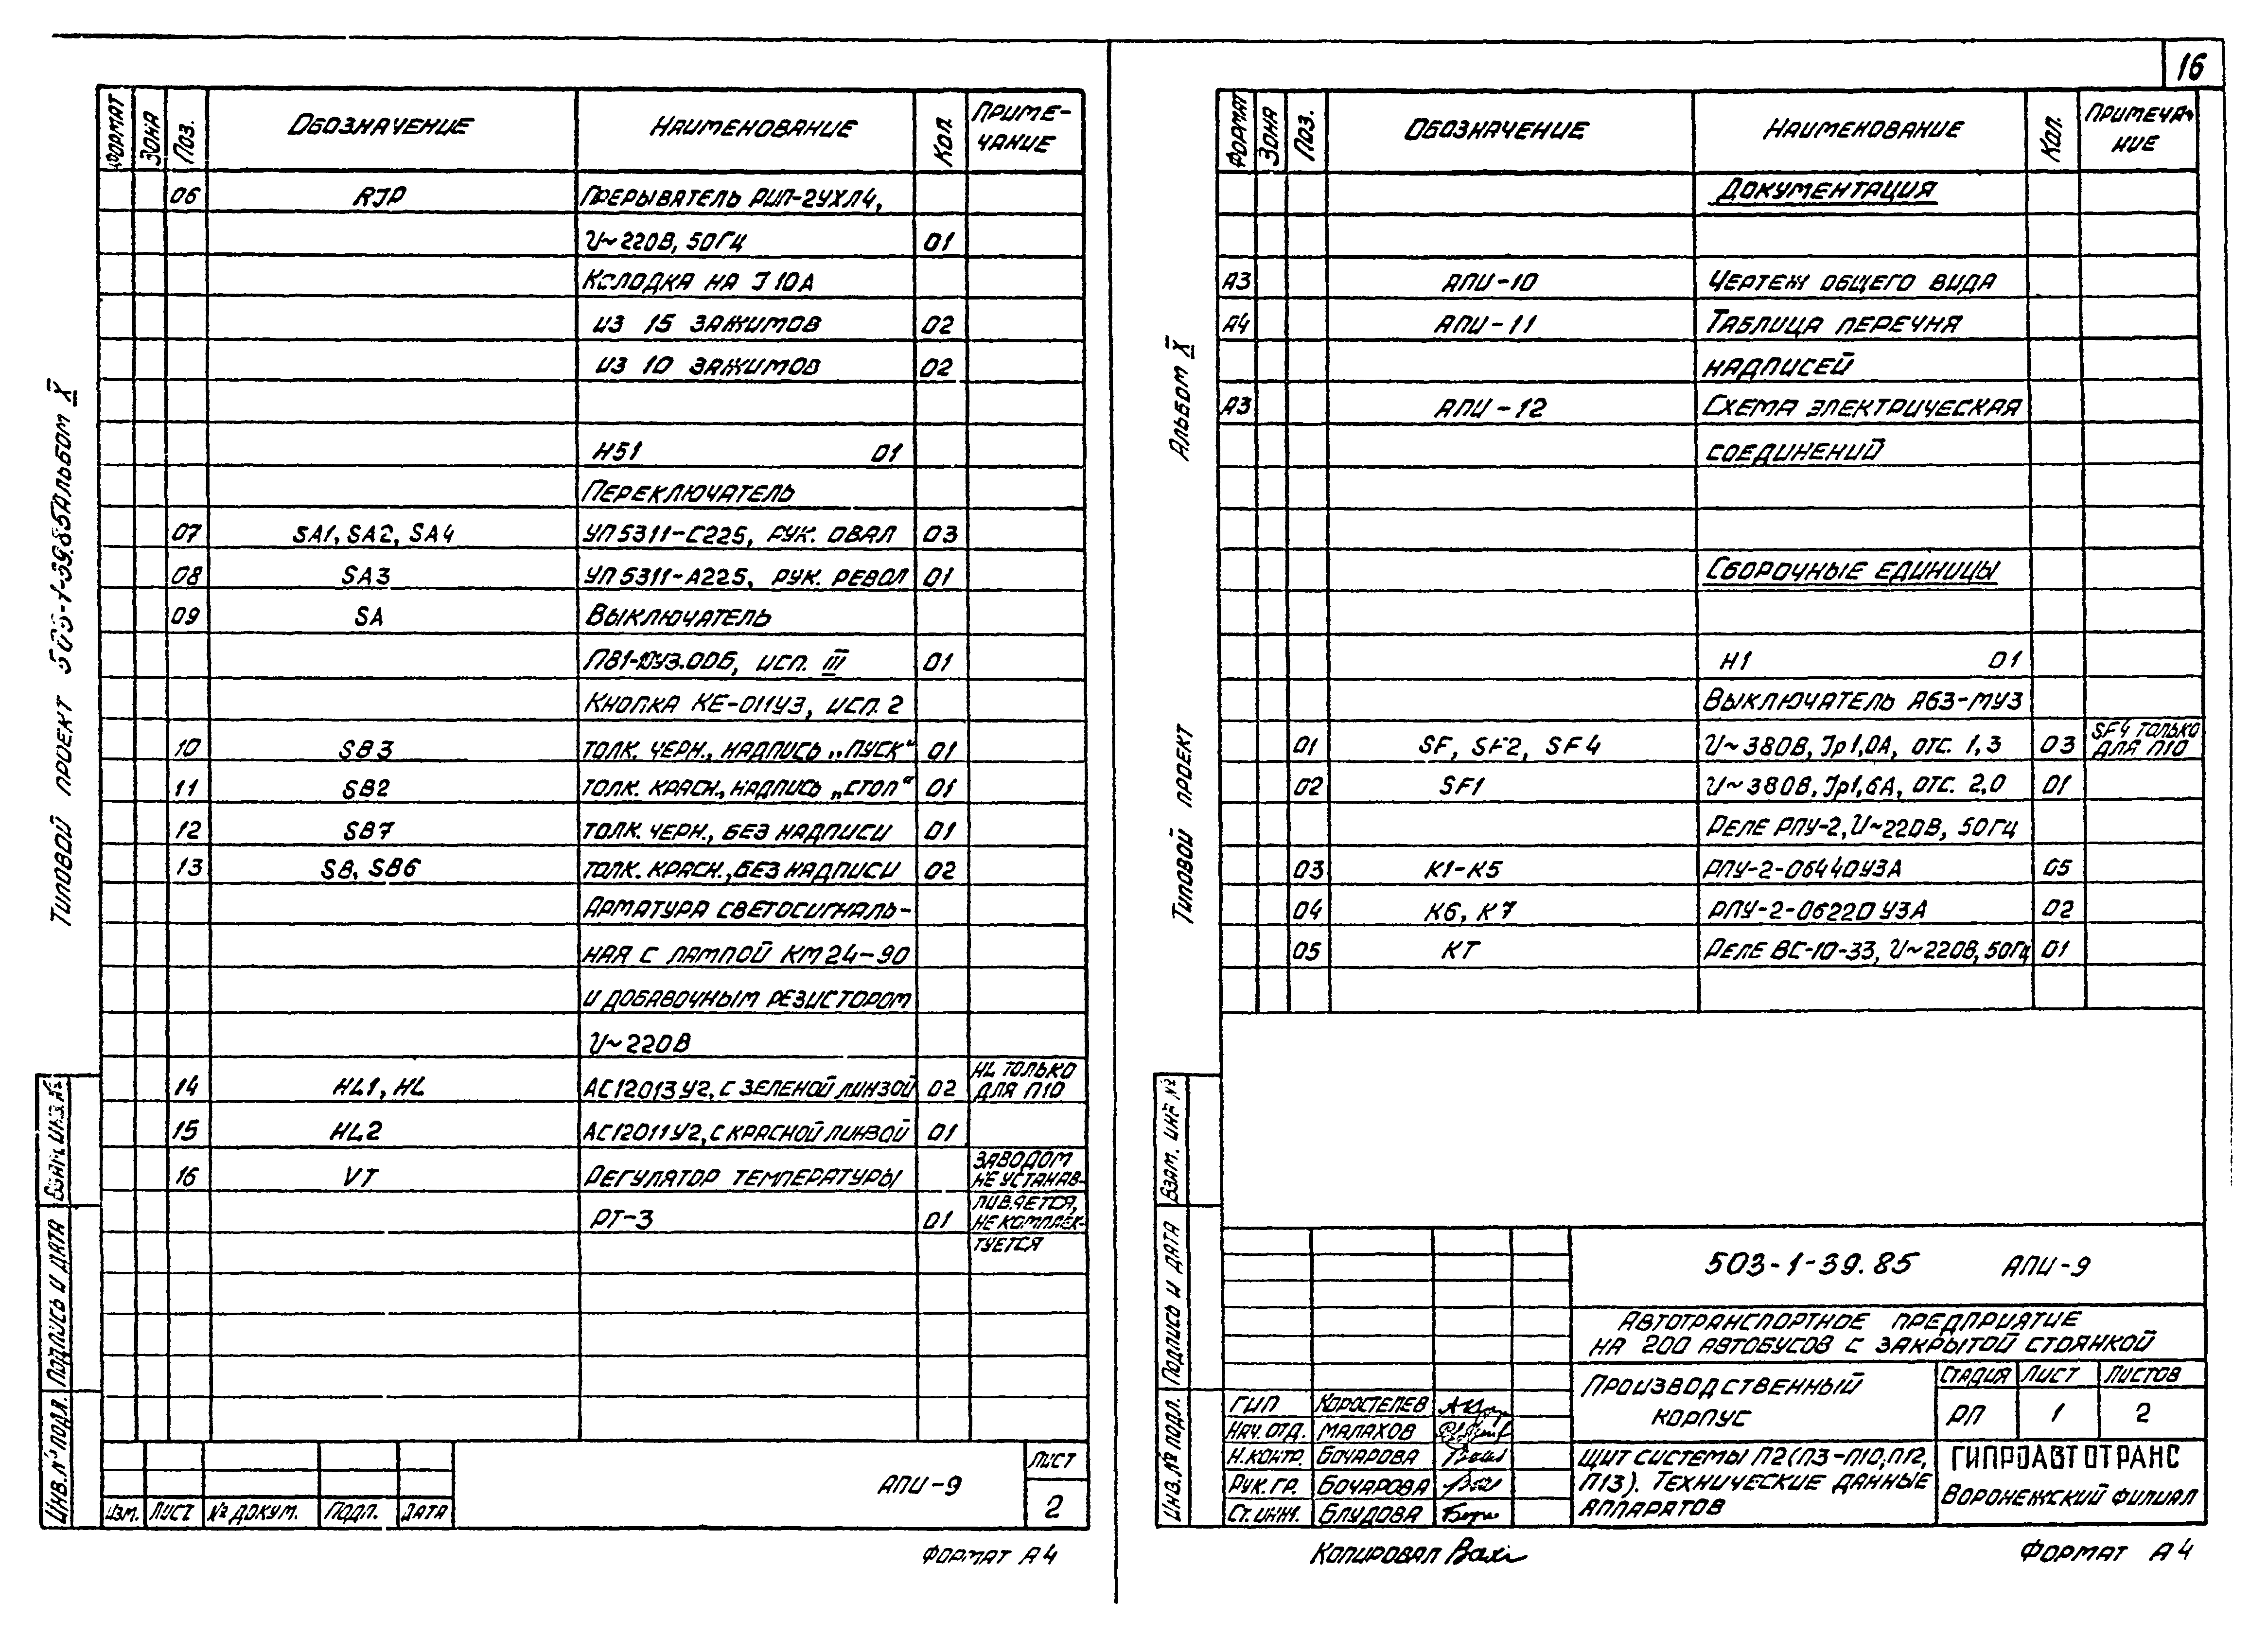 16
Формат Зона Поз. Обозначение Наименование Кол. Приме-
чание
06 RJP Прерыватель РИП-2УХЛ4,
U~220В, 50Гц 01
Колодка на J 10А
из 15 зажимов 02
из 10 зажимов 02
Н51 01
Переключатель
07 SA1, SA2, SA4 УП5311-С225, рук. овал 03
08 SA3 УП5311-А225, рук. револ 01
09 SA Выключатель
исп. III 01
Кнопка КЕ-011У3, исп. 2
10 SB3 толк. черн., надпись „Пуск“ 01
11 SB2 толк. красн., надпись „Стоп“ 01
12 SB7 толк. черн., без надписи 01
13 SB, SB6 толк. красн., без надписи 02
Арматура светосигналь-
ная с лампой КМ24-90
и добавочным резистором
U~220В
14 HL1, HL АС12013У2, с зеленой линзой 02 HL только
для П10
15 HL2 АС12011У2, с красной линзой 01
16 VT Регулятор температуры Заводом
не устанав-
РТ-3 01 ливается,
не комплек-
туется
Типовой проект Альбом X
Взам. инв. №
Подпись и дата
Инв. № подл.
Изм. Лист № докум. Подп. Дата
АПИ-9
Лист
2
Формат А4
Формат Зона Поз. Обозначение Наименование Кол. Примеча-
ние
Документация
А3 АПИ-10 Чертеж общего вида
А4 АПИ-11 Таблица перечня
надписей
А3 АПИ-12 Схема электрическая
соединений
Сборочные единицы
Н1 01
Выключатель А63-МУ3
01 SF, SF2, SF4 U~380В, Jр1,0А, отс. 1,3 03 SF4 только
для П10
02 SF1 U~380В, Jр1,6А, отс. 2,0 01
Реле РПУ-2, U~220В, 50Гц
03 К1-К5 РПУ-2-06440У3А 05
04 К6, К7 РПУ-2-06220У3А 02
05 КТ Реле ВС-10-33, U~220В, 50Гц 01
Типовой проект Альбом X
Взам. инв №
Подпись и дата
Инв. № подл.
503-1-39.85 АПИ-9
Автотранспортное предприятие
на 200 автобусов с закрытой стоянкой
Производственный
корпус
Стадия Лист Листов
РП 1 2
ГИП Коростелев
Нач. отд. Малахов
Н. контр. Бочарова
Рук. гр. Бочарова
Ст. инж. Блудова
Щит системы П2(П3-П10, П12,
П13). Технические данные
аппаратов
ГИПРОАВТОТРАНС
Воронежский филиал
Копировал
Формат А4